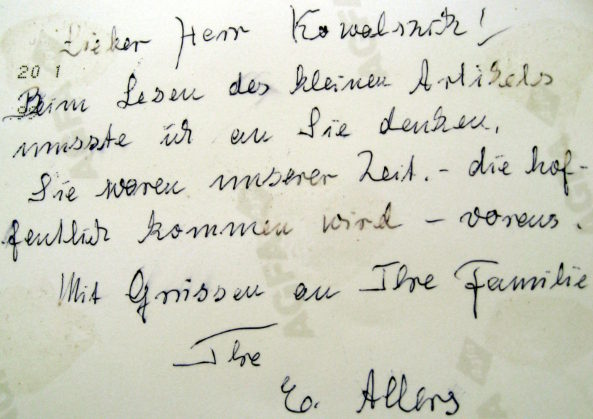 Lieber Herr Kowalsnik!
20 1
Beim Lesen des kleinen Artikels
musste ich an Sie denken.
Sie waren unserer Zeit. - die hof-
fentlich kommen wird - voraus.
Mit Grüssen an Ihre Familie
Ihre
E. Allers
AGFA
AGFA
AGFA